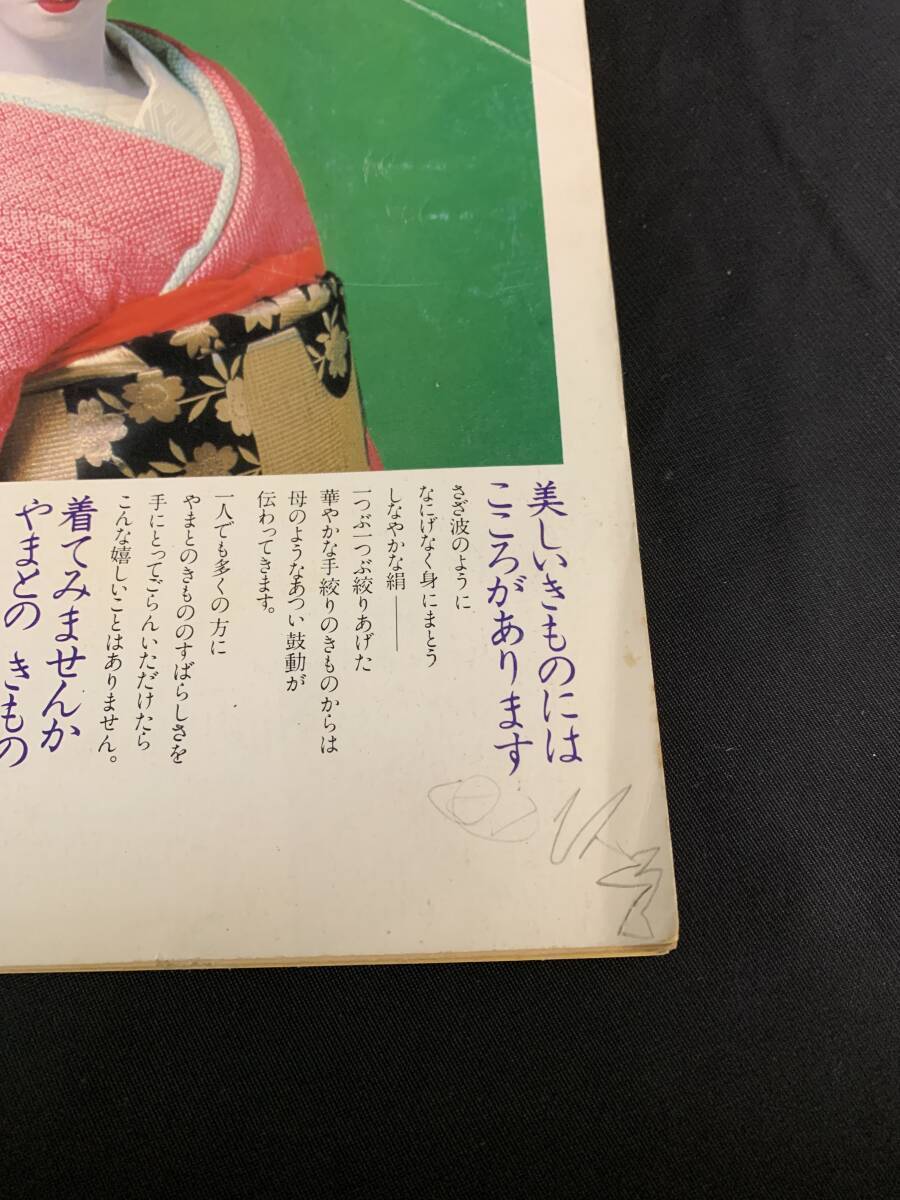 美しいきものには
こころがあります
さざ波のように
なにげなく身にまとう
しなやかな絹――
一つぶ一つぶ絞りあげた
華やかな手絞りのきものからは
母のようなあつい鼓動が
伝わってきます。
一人でも多くの方に
やまとのきもののすばらしさを
手にとってごらんいただけたら
こんな嬉しいことはありません。
着てみませんか
やまとの きもの